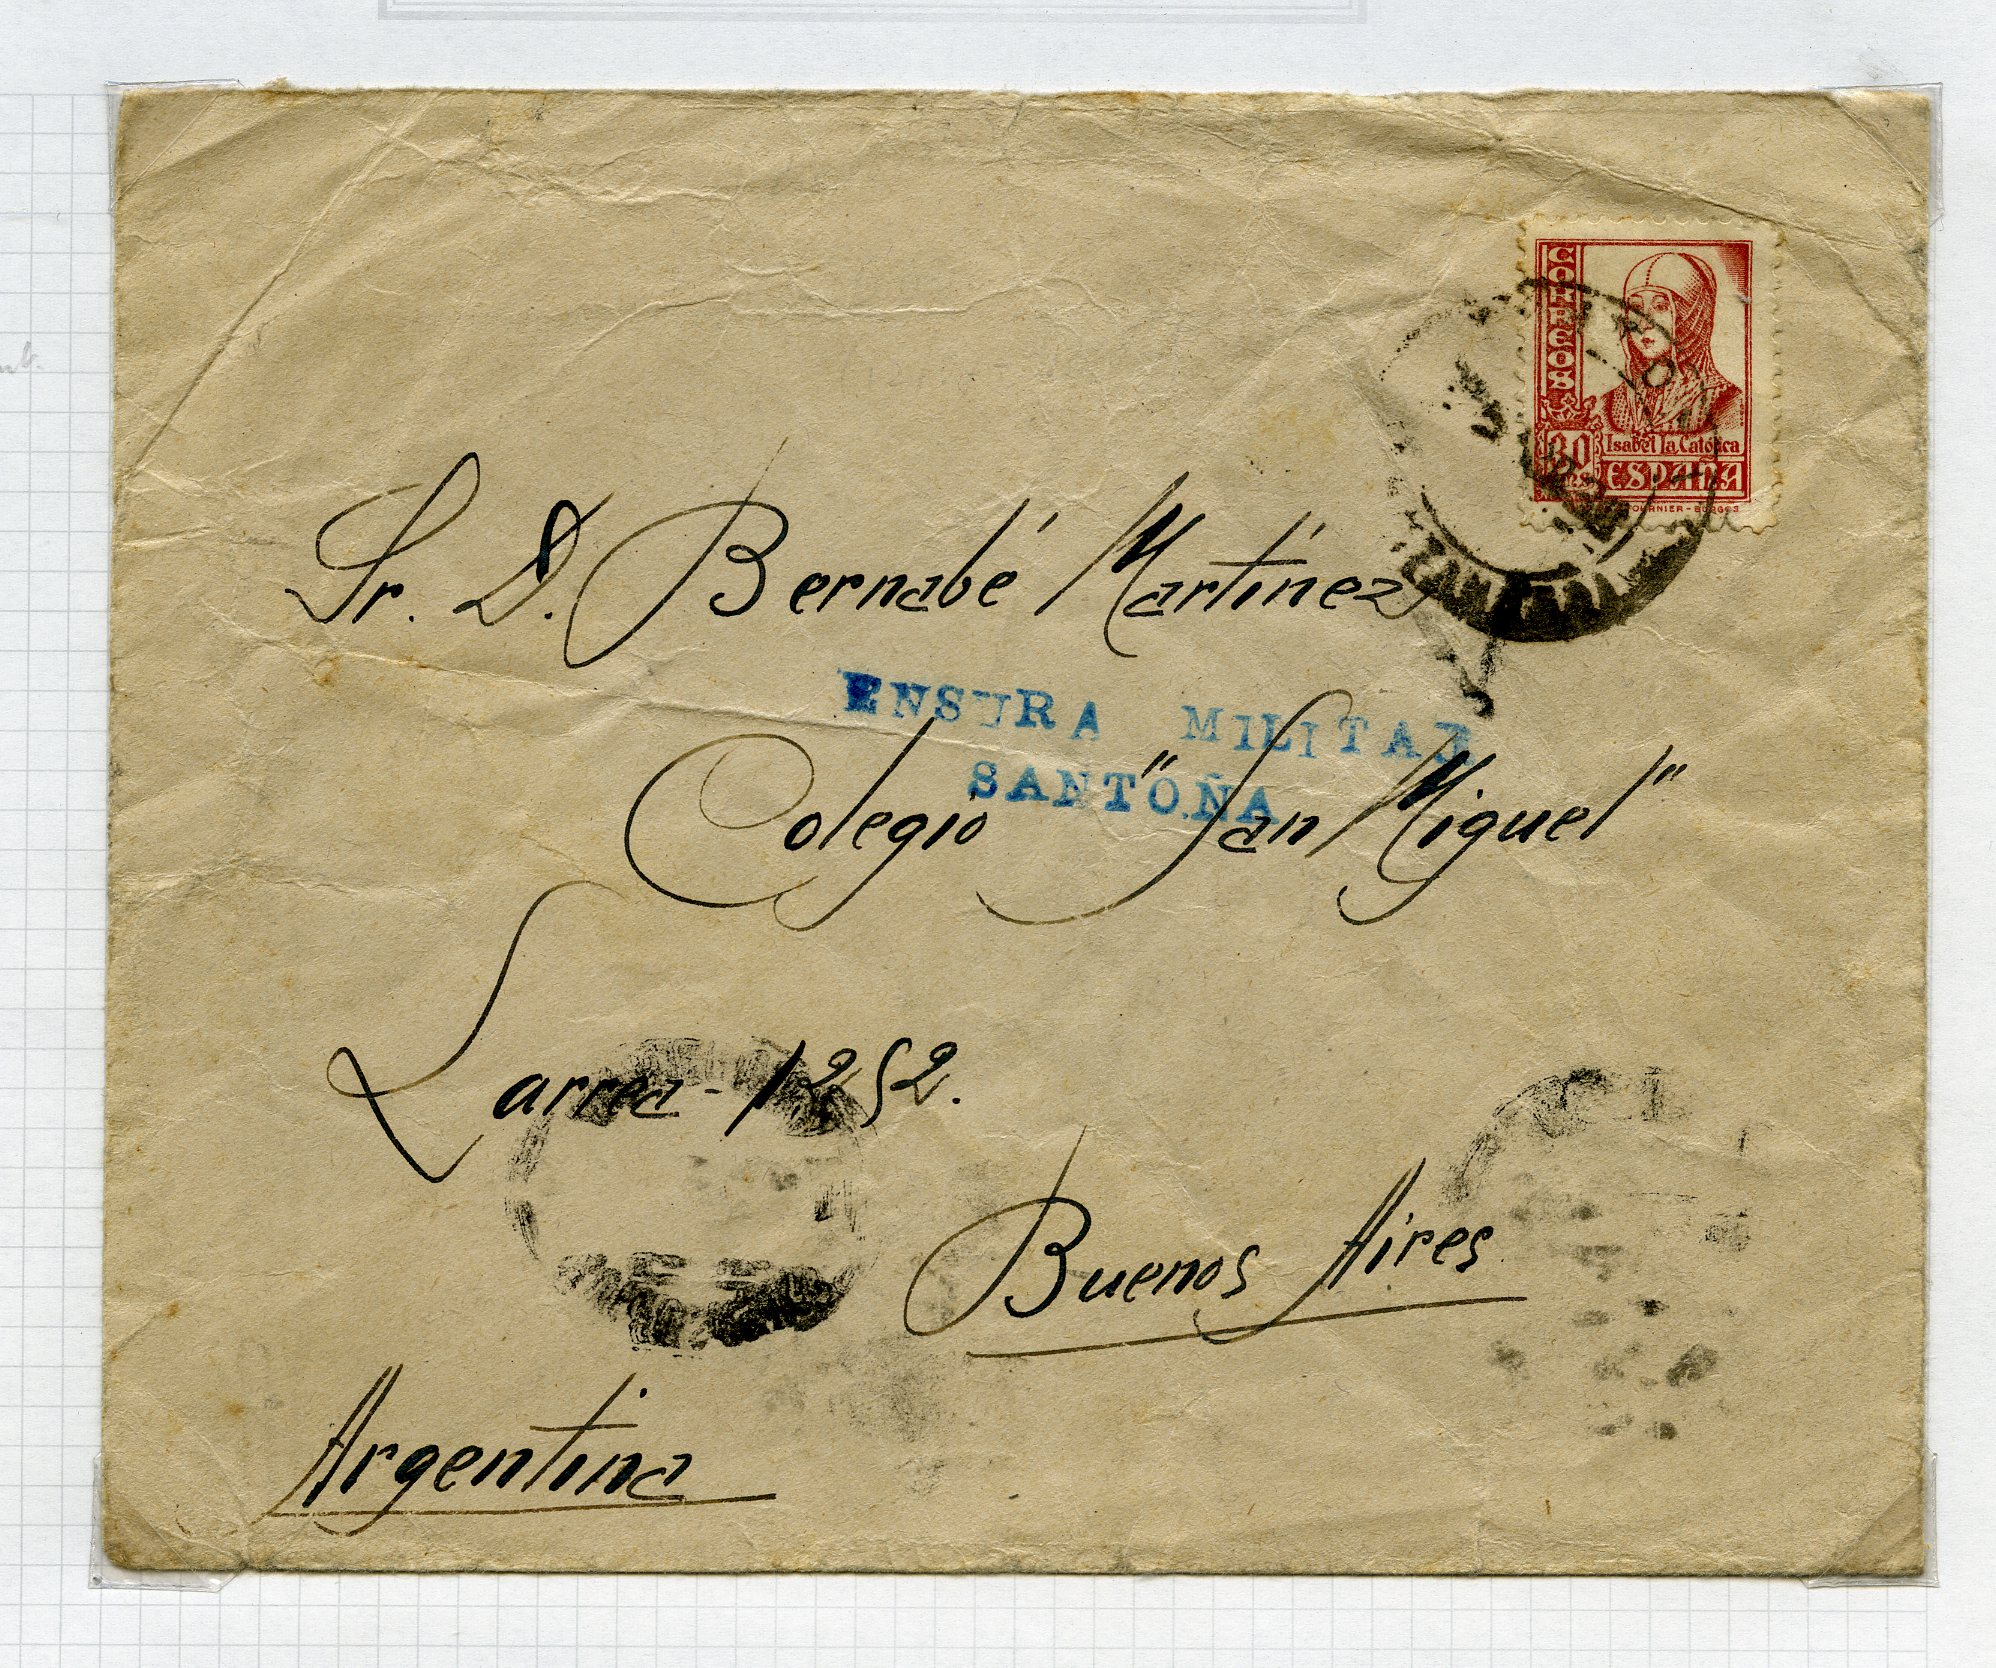 CORREOS
30
CTS
Isabel la Católica
ESPAÑA
FOURNIER - BURGOS
Sr. D. Bernabé Martínez
ENSURA MILITAR
SANTOÑA
Colegio "San Miguel"
Larrea - 1252.
Buenos Aires
Argentina